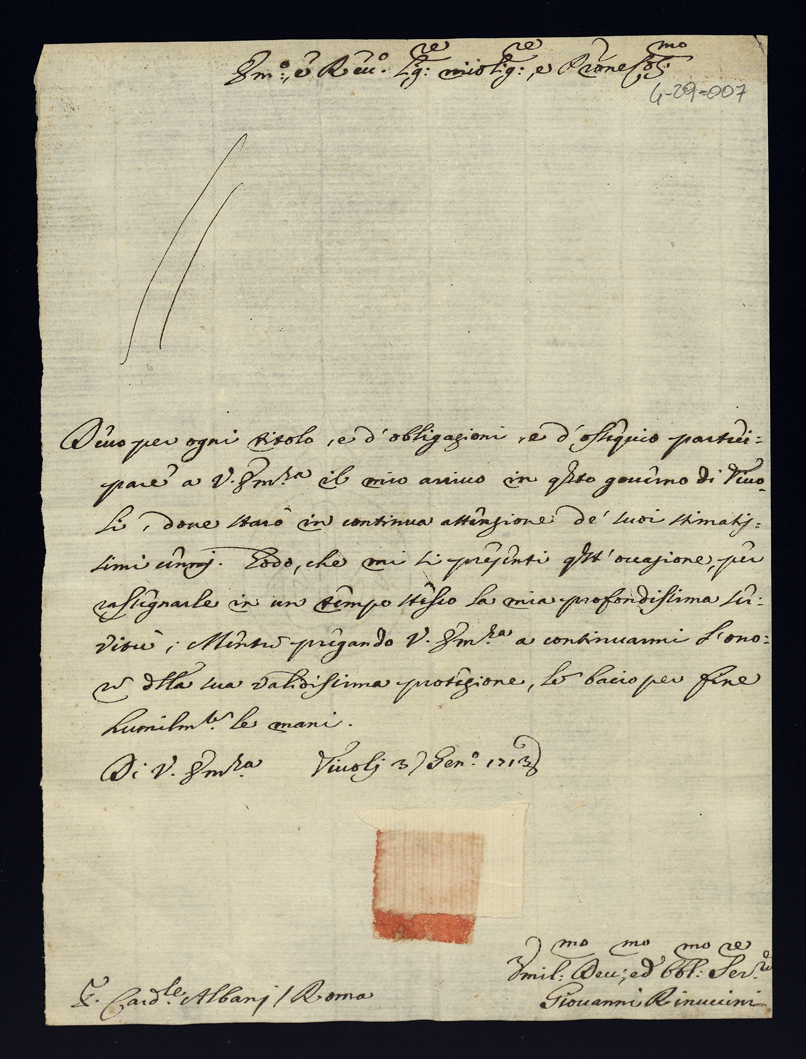 Em:º, e Reu:º Sig:re mio Sig:re, e Prone Col:mo
4-29-007
Deuo per ogni titolo, e d'obligazioni, e d'ossequio parteci=
pare a V. Em:za il mio arriuo in qsto gouerno di Tiuo=
li, doue starò in continua attenzione de' suoi stimatis=
simi cenni. Godo, che mi si presenti qst'occasione, per
rassegnarle in un tempo stesso la mia profondissima ser=
vitù; Mentre pregando V. Em:za a continuarmi l'ono=
re della sua validissima protezione, le bacio per fine
humilm:te le mani.
Di V. Em:za Tiuoli 3 Gen:º 1713
Vmil:mo Deu:mo, ed Obl:mo Ser:re
S. Card:le Albani / Roma
Giouanni Rinuccini